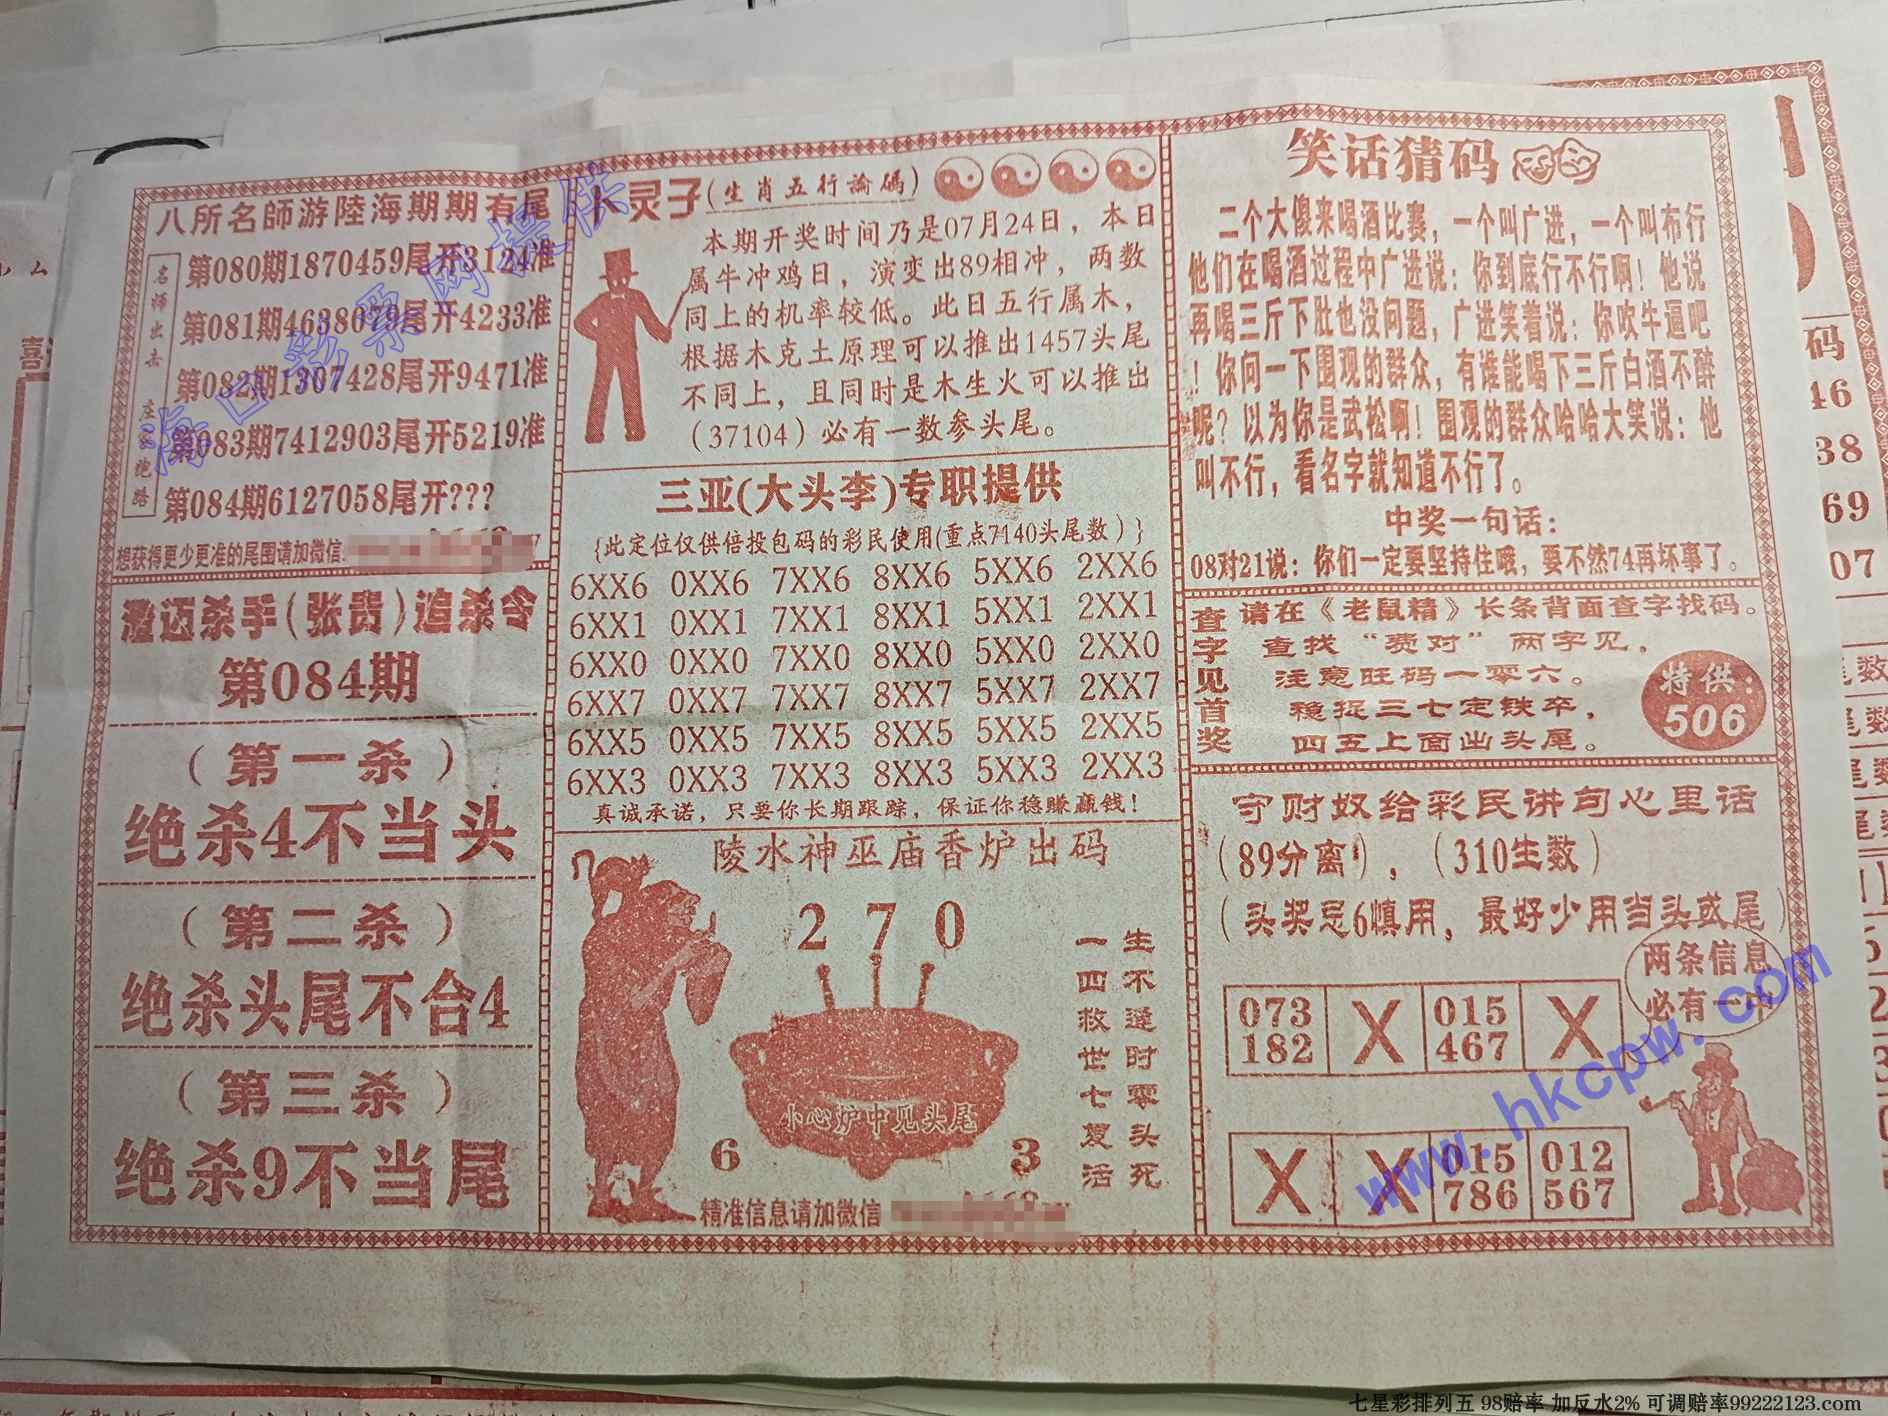 八所名師游陸海期期有尾
名师出去 庄家跑路
第080期1870459尾开3124准
第081期4638079尾开4233准
第082期1307428尾开9471准
第083期7412903尾开5219准
第084期6127058尾开???
想获得更少更准的尾围请加微信
澄迈杀手(张贵)追杀令
第084期
(第一杀)
绝杀4不当头
(第二杀)
绝杀头尾不合4
(第三杀)
绝杀9不当尾
卜灵子(生肖五行論碼)
本期开奖时间乃是07月24日，本日
属牛冲鸡日，演变出89相冲，两数
同上的机率较低。此日五行属木，
根据木克土原理可以推出1457头尾
不同上，且同时是木生火可以推出
(37104)必有一数参头尾。
三亚(大头李)专职提供
{此定位仅供倍投包码的彩民使用(重点7140头尾数)}
6XX6 0XX6 7XX6 8XX6 5XX6 2XX6
6XX1 0XX1 7XX1 8XX1 5XX1 2XX1
6XX0 0XX0 7XX0 8XX0 5XX0 2XX0
6XX7 0XX7 7XX7 8XX7 5XX7 2XX7
6XX5 0XX5 7XX5 8XX5 5XX5 2XX5
6XX3 0XX3 7XX3 8XX3 5XX3 2XX3
真诚承诺，只要你长期跟踪，保证你稳赚赢钱！
陵水神巫庙香炉出码
2 7 0
生不逢时零头死
一四救世七复活
小心炉中见头尾
6 3
精准信息请加微信
笑话猜码
二个大傻来喝酒比赛，一个叫广进，一个叫布行
他们在喝酒过程中广进说：你到底行不行啊！他说
再喝三斤下肚也没问题，广进笑着说：你吹牛逼吧
！你问一下围观的群众，有谁能喝下三斤白酒不醉
呢？以为你是武松啊！围观的群众哈哈大笑说：他
叫不行，看名字就知道不行了。
中奖一句话：
08对21说：你们一定要坚持住哦，要不然74再坏事了。
查字见首奖
请在《老鼠精》长条背面查字找码。
查找“费对”两字见，
注意旺码一零六。
稳捉三七定铁卒，
四五上面出头尾。
特供：
506
守财奴给彩民讲句心里话
(89分离)，(310生数)
(头奖忌6慎用，最好少用当头或尾)
两条信息
必有一中
073 X 015 X
182 467
X X 015 012
786 567
海口彩票网提供
www.hkcpw.com
码
46
38
69
07
尾数
七星彩排列五 98赔率 加反水2% 可调赔率99222123.com